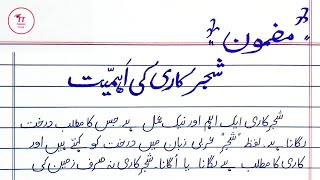 "مضمون"
شجرکاری کی اہمیّت
شجرکاری ایک اہم اور نیک عمل ہے جس کا مطلب درخت
لگانا ہے۔ لفظ "شجر" عربی زبان میں درخت کو کہتے ہیں اور
کاری کا مطلب ہے لگانا یا اُگانا۔ شجرکاری نہ صرف زمین کی